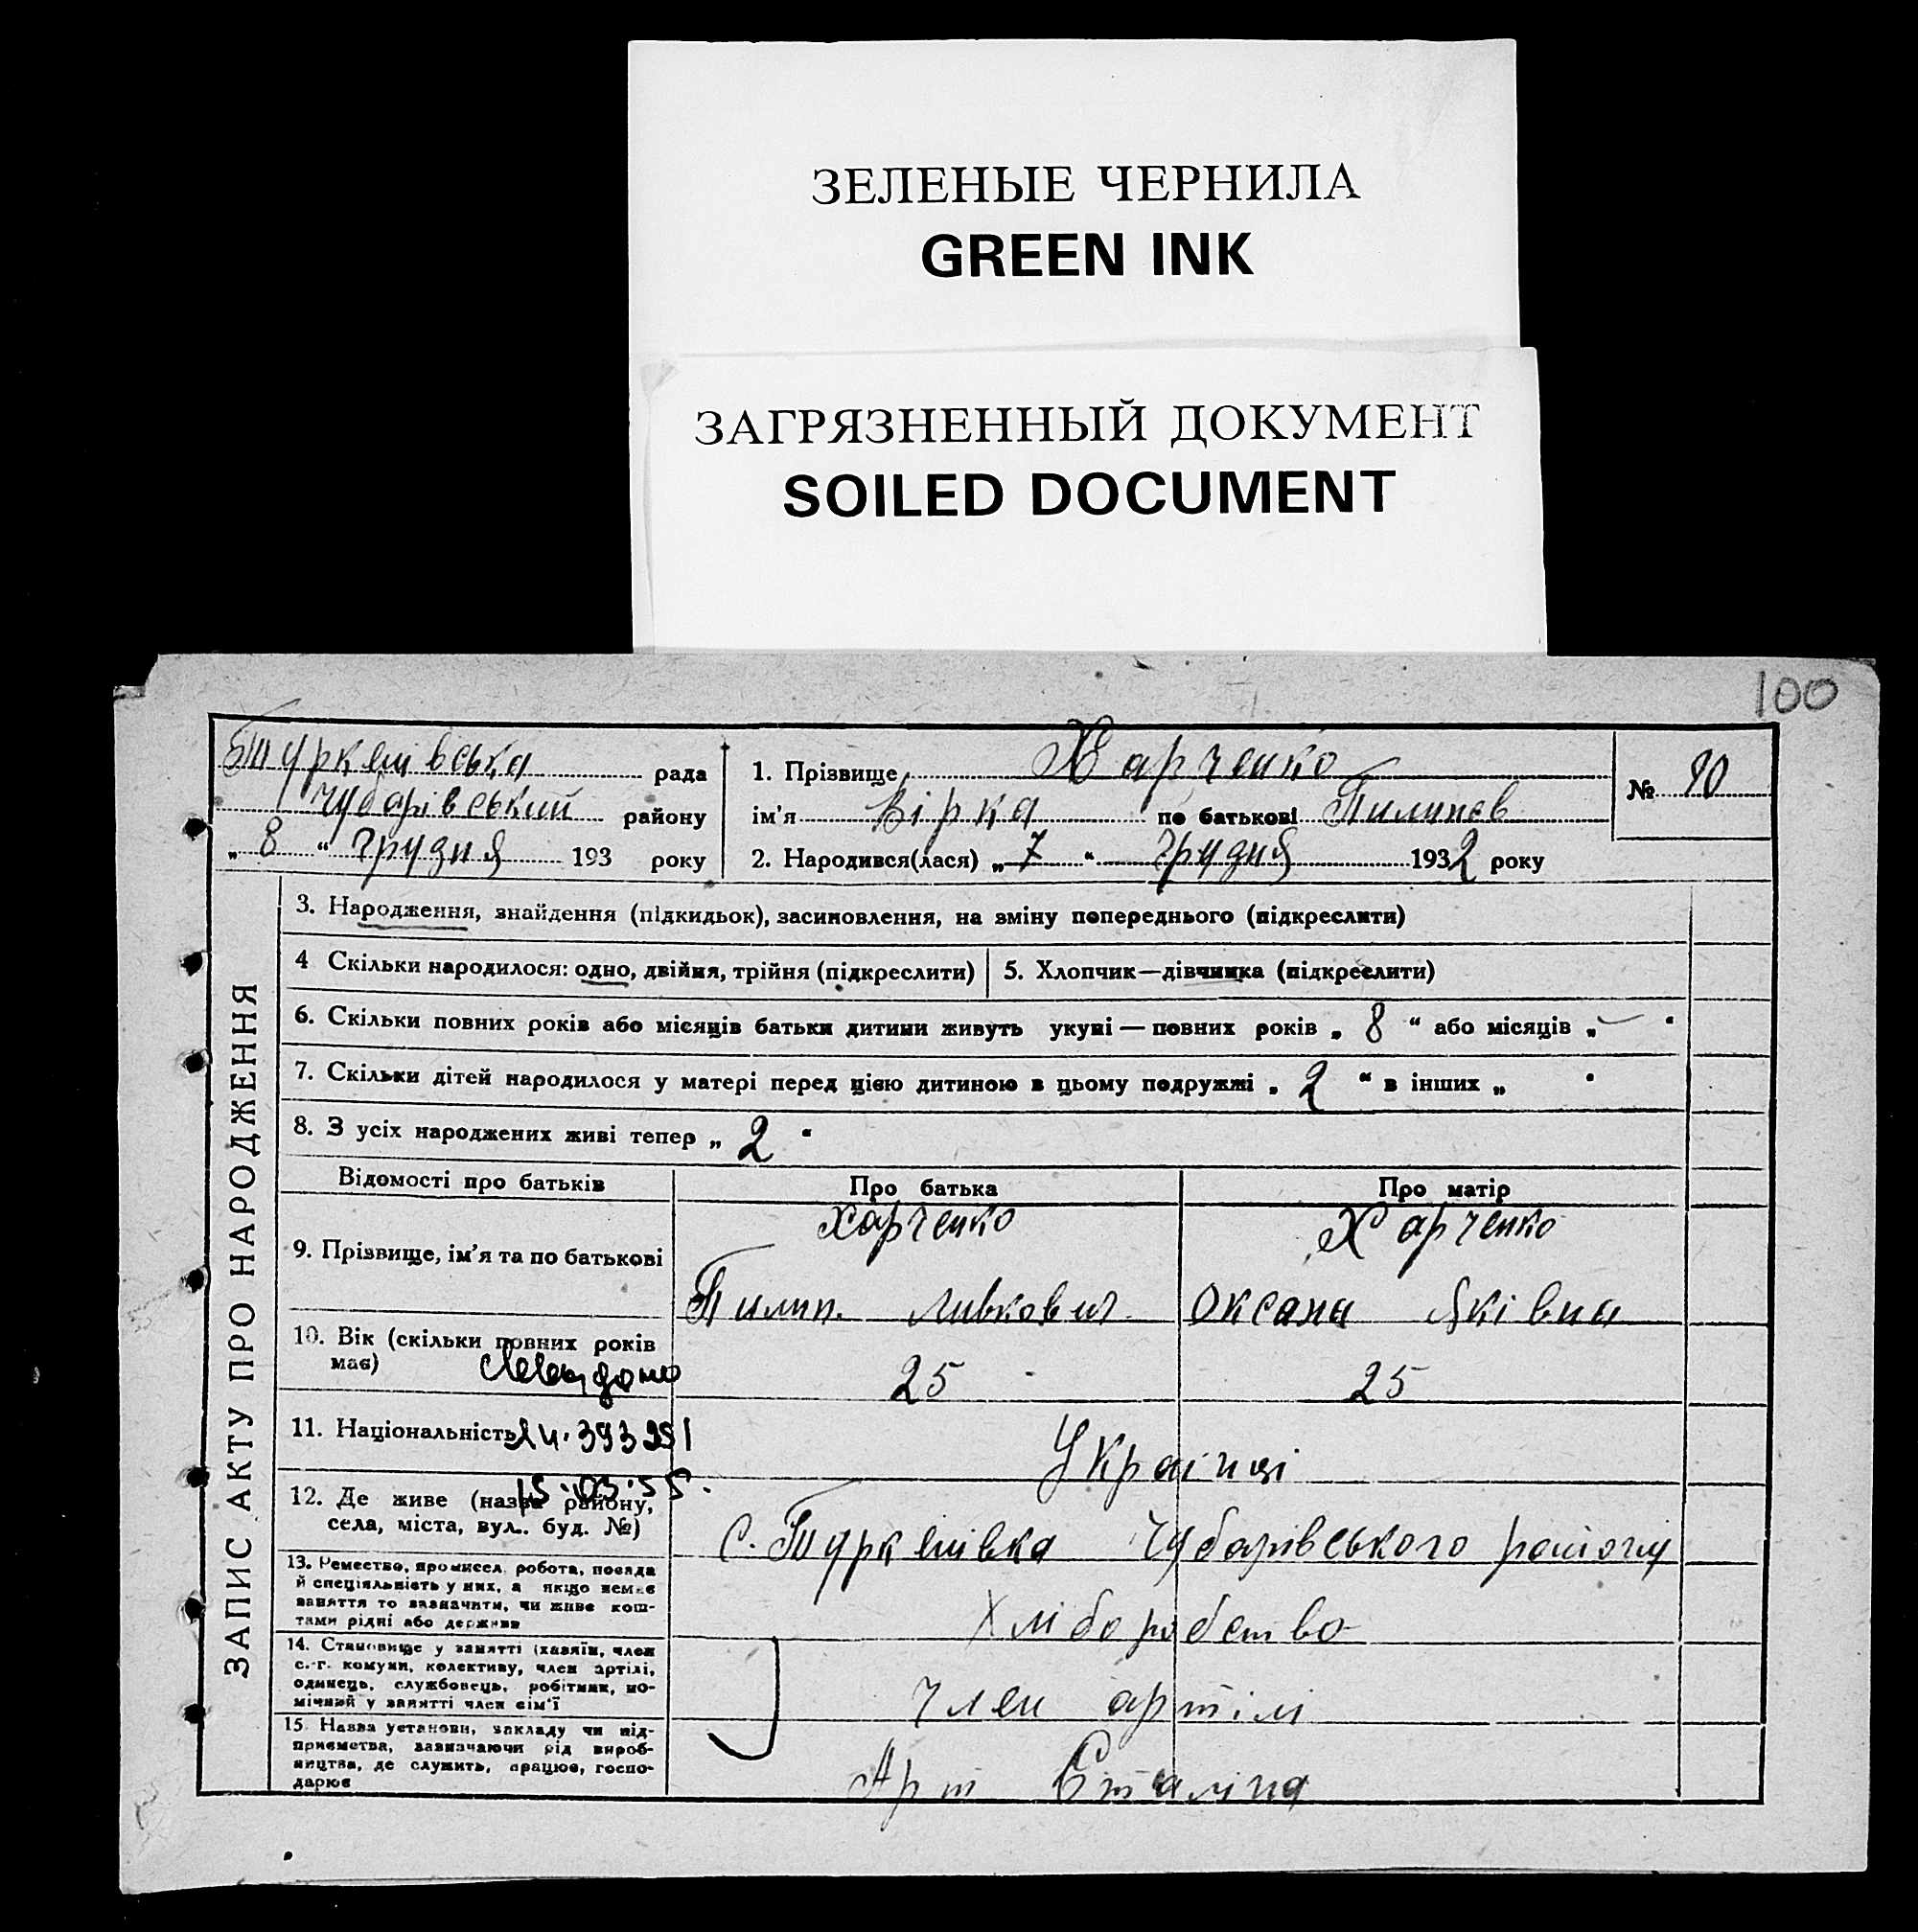 ЗЕЛЕНЫЕ ЧЕРНИЛА
GREEN INK
ЗАГРЯЗНЕННЫЙ ДОКУМЕНТ
SOILED DOCUMENT
100
Туркенівська рада
Чубарівський району
„ 8 “ Грудня 193 року
1. Прізвище Харченко
ім'я Вірка по батькові Пилипов
2. Народився(лася) „ 7 “ Грудня 1932 року
№ 90
ЗАПИС АКТУ ПРО НАРОДЖЕННЯ
3. Народження, знайдення (підкидьок), засиновлення, на зміну попереднього (підкреслити)
4 Скільки народилося: одно, двійня, трійня (підкреслити)
5. Хлопчик—дівчинка (підкреслити)
6. Скільки повних років або місяців батьки дитини живуть укупі — повних років „ 8 “ або місяців „ — “
7. Скільки дітей народилося у матері перед цією дитиною в цьому подружжі „ 2 “ в інших „ “
8. З усіх народжених живі тепер „ 2 “
Відомості про батьків
Про батька
Про матір
9. Прізвище, ім'я та по батькові
Харченко
Пилип
Харченко
Оксана Яківна
10. Вік (скільки повних років
має)
25
25
11. Національність
15.03.55.
Українці
12. Де живе (назва району,
села, міста, вул. буд. №)
с. Туркенівка Чубарівського району
13. Ремество, промисел, робота, посада
й спеціяльність у них, а якщо немає
заняття то зазначити, чи живе кош-
тами рідні або держави
Хліборобство
14. Становище у занятті (хазяїн, член
с.-г. комуни, колективу, член артілі,
одинець, службовець, робітник, по-
мічний у занятті член сім'ї
Член артілі
15. Назва установи, закладу чи під-
приємства, зазначаючи рід вироб-
ництва, де служить, працює, госпо-
дарює
Арт Сталіна